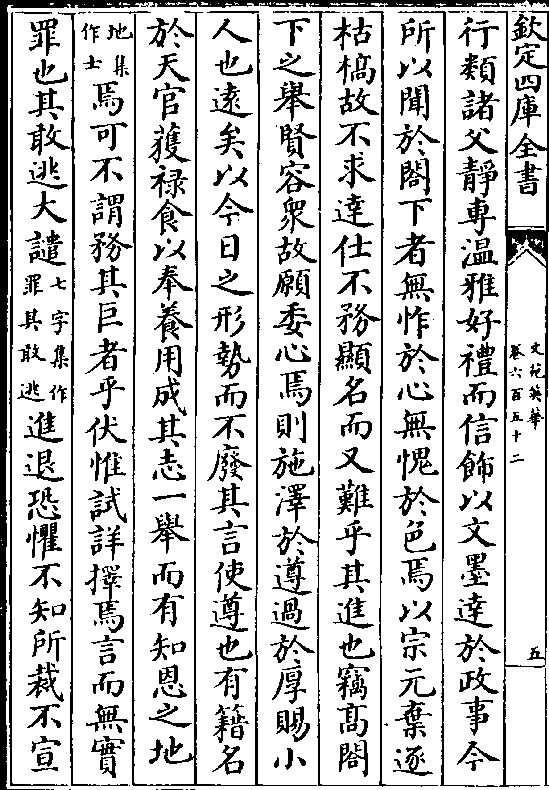 欽定四庫全書
文苑英華
卷六百五十二
五
行類諸父靜專温雅好禮而信飾以文墨達於政事今
所以聞於閤下者無怍於心無愧於色焉以宗元棄逐
枯槁故不求達仕不務顯名而又難乎其進也竊髙閤
下之舉賢容衆故願委心焉則施澤於遵過於厚賜小
人也遠矣以今日之形勢而不廢其言使遵也有籍名
於天官獲禄食以奉養用成其志一舉而有知恩之地
地集作士焉可不謂務其巨者乎伏惟試詳擇焉言而無實
罪也其敢逃大譴七字集作罪其敢逃進退恐懼不知所裁不宣